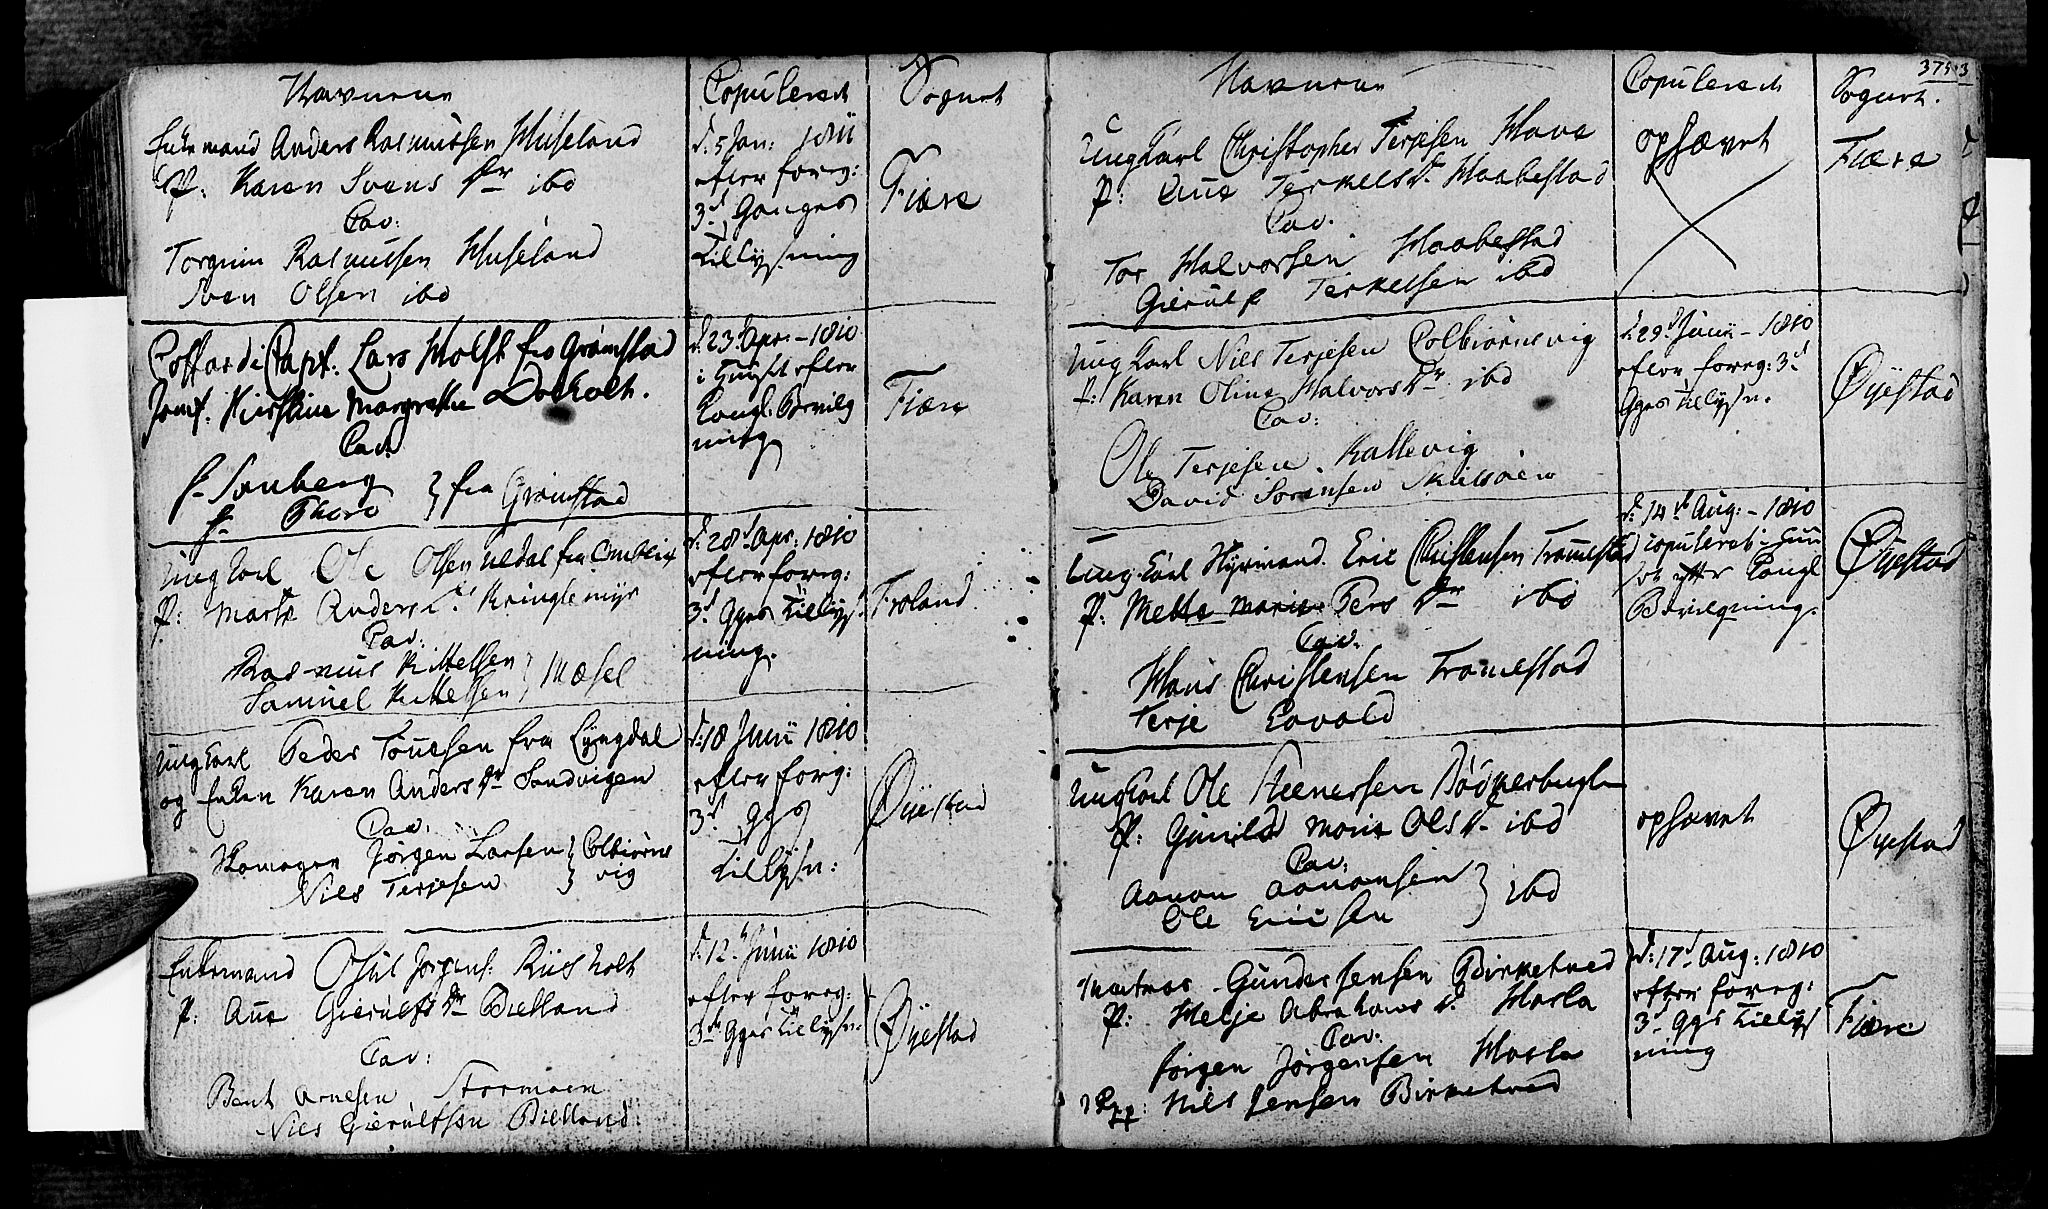 Navnene Copuleret Sognet
Enkemand Anders Rasmussen Huseland
P: Karen Svens Dr ibd
Cav:
Torgrim Rasmussen Huseland
Sven Olsen ibd
d: 5 Jan: 1811
efter foreg:
3d Ganges
Tillysning
Fiære
Coffardi Capt: Lars Holst fra Grømstad
Jomf. Kirstine Margrethe Dokholt.
Cav.
fra Grømstad
d: 23d Apr. - 1810
i Huuset efter
Kongl. Bevilg
ning
Fiære
Ung Karl Ole Olsen Uldal fra
P: Marte Anders D. Kringlemyr
Cav:
Rasmus Kittelsen
Samuel Kittelsen } Mæsel
d: 28d Apr: 1810
efter foreg:
3d Gges Tillys
ning.
Froland
Ung Karl Peder Tønnesen fra Lyngdal
og Enken Karen Anders Dr Sandvigen
Cav.
Jørgen Larsen } Colbiørns
Niels Terjesen } vig
d: 18 Junii 1810
efter foreg:
3d Ggs
Tillysn:
Øyestad
Enkemand Osul Jørgens: Riisholt
P: Ane Gierulfs Dr Bielland
Cav:
Bent Arnesen Stormoen
Nils Gierulfsen Bielland
d: 12. Junii 1810
efter foreg:
3de Gges Tillysn:
Øyestad
Navnene Copuleret Sognet.
375
Ung Karl Christopher Terjesen Have
P: Ane Terkels D. Haabestad
Cav.
Tor Halvorsen Haabestad
Gierulf Terkelsen ibd
ophævet
Fiære
Ung Karl Niels Terjesen Colbiørnsvig
P: Karen Oline Halvors Dr ibd
Cav:
Ole Terjesen Kallevig
David Sørensen Skilsøen
d. 29d Junii - 1810
efter foreg: 3d
Gges Tillysn.
Øyestad
Ung Karl Styrmand Eric Christensen Tromestad
P: Mette Marie Pers Dr ibd
Cav.
Hans Christensen Tromestad
Terje
d: 14d Aug: - 1810
copuleret i Huu
set efter Kongl
Bevilgning.
Øyestad
Ung Karl Ole Steenersen
P: Gunild Marie Ols D. ibd
Cav.
Aanon Aanonsen
Ole Ericsen } ibd
ophævet
Øyestad
Matros Gunder Jensen Birketved
P: Helje Abrahams D. Hasla
Cav.
Jørgen Jørgensen Hasla
Nils Jensen Birketved
d: 17d Aug: 1810
efter foreg:
3d Ggs Tillys
ning
Fiære